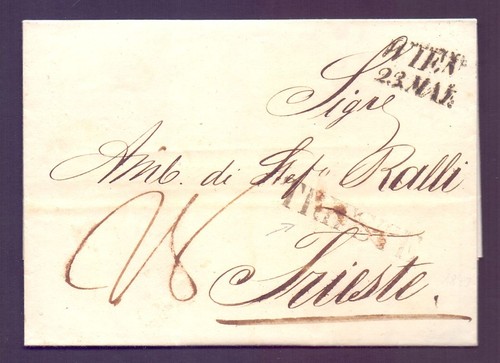 WIEN
23.MAI.
Sigre
Amb. di Stefo Ralli
TRIEST
Trieste.